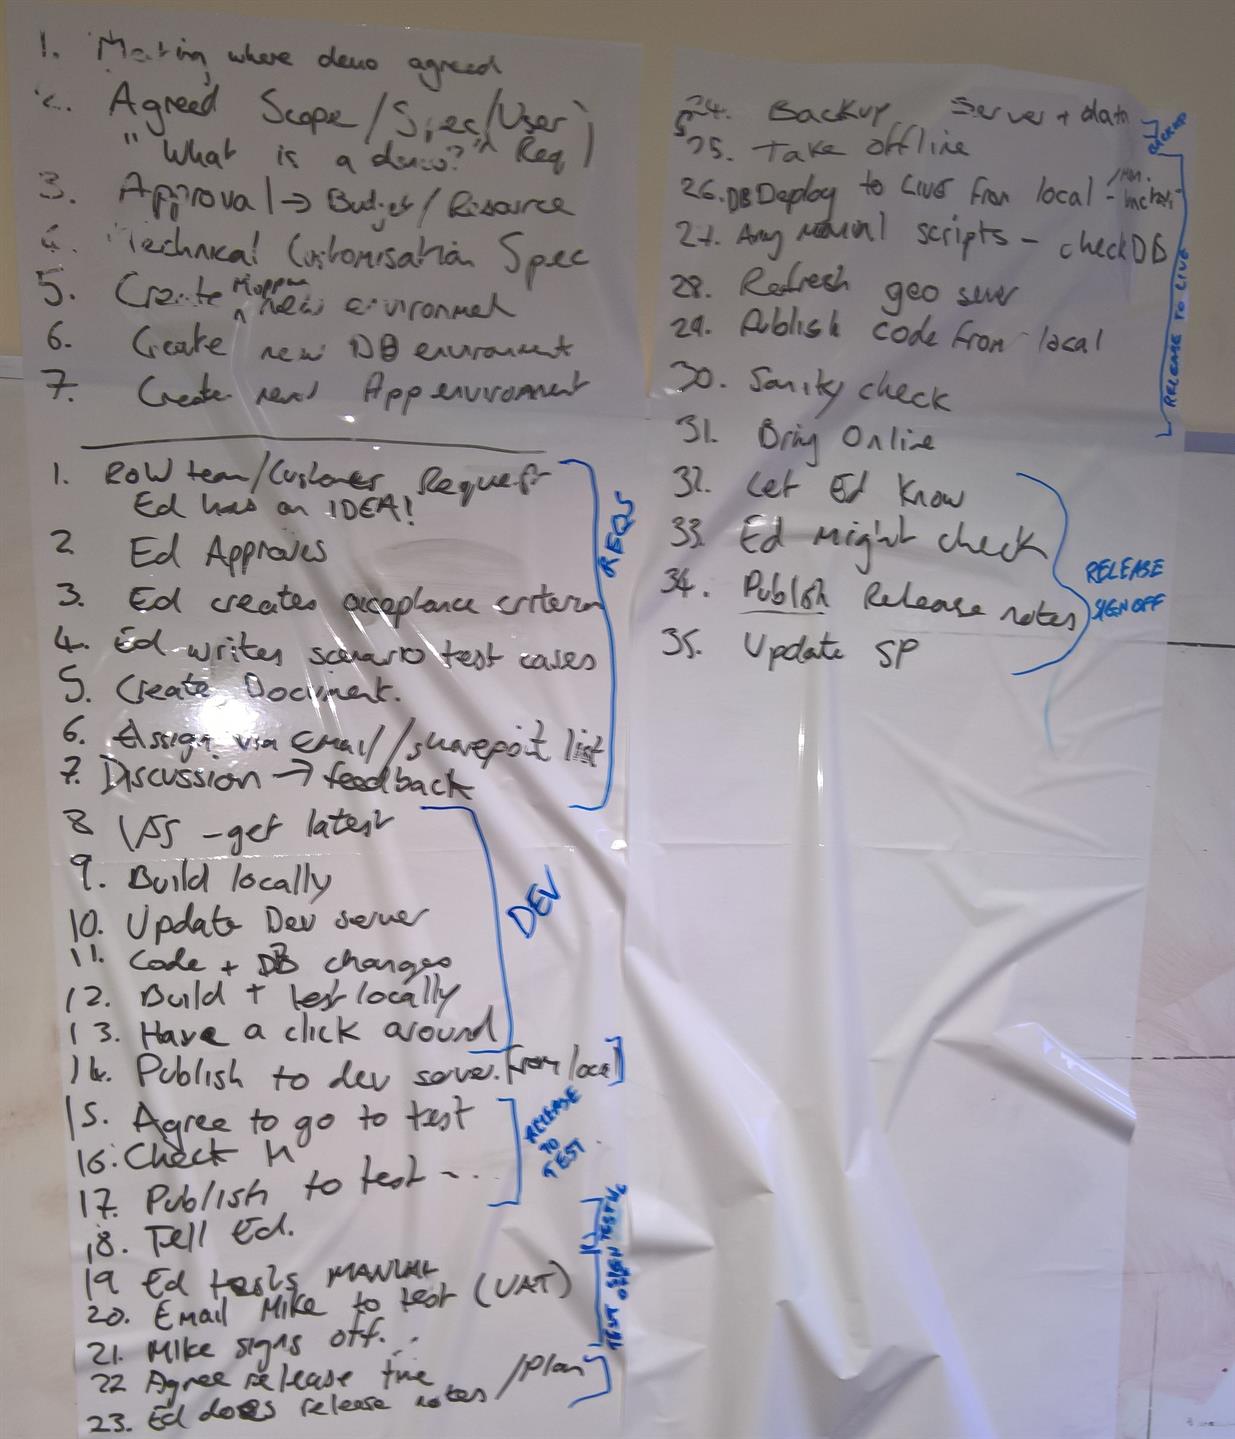 1. Meeting where demo agreed
2. Agreed Scope/Spec/User
"What is a demo?" Req)
3. Approval → Budget/Resource
4. Technical Customisation Spec
5. Create Mapping new environment
6. Create new DB environment
7. Create new App environment
1. RoW team/Customer Request
Ed has an IDEA!
2 Ed Approves
3. Ed creates acceptance criteria
4. Ed writes scenario test cases
5. Create Document.
6. Assign via Email//sharepoint list
7. Discussion → feedback
REQS
8 VSS - get latest
9. Build locally
10. Update Dev server
11. Code + DB changes
12. Build + test locally
13. Have a click around
DEV
14. Publish to dev server. from local
15. Agree to go to test
16. Check
17. Publish to test -...
RELEASE
TO
TEST
18. Tell Ed.
19 Ed tests MANUAL
20. Email Mike to test (UAT)
21. Mike signs off...
TEST SIGN
OFF
22 Agree release time /plan
23. Ed does release notes
24. Backup server + data
BACKUP
25. Take offline
26. DB Deploy to Live from local -
27. Any manual scripts - check DB
28. Refresh geo server
29. Publish code from local
30. Sanity check
31. Bring Online
RELEASE TO LIVE
32. Let Ed Know
33. Ed might check
34. Publish Release notes
35. Update SP
RELEASE
SIGN OFF